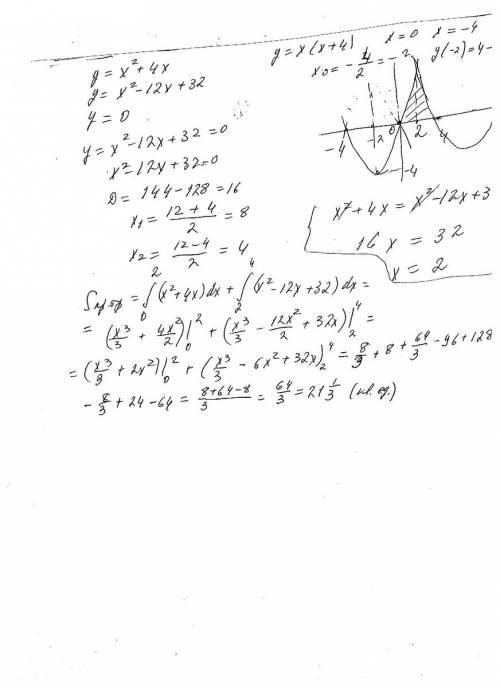 y = x² + 4x
y = x² - 12x + 32
y = 0
y = x² - 12x + 32 = 0
x² - 12x + 32 = 0
D = 144 - 128 = 16
x₁ = (12 + 4)/2 = 8
x₂ = (12 - 4)/2 = 4
y = x (x + 4)
x = 0 x = -4
x₀ = -4/2 = -2
y(-2) = 4 -
-4 -2 0 2 4
-4
x² + 4x = x² - 12x + 3
16x = 32
x = 2
S = ∫₀² (x² + 4x) dx + ∫₂⁴ (x² - 12x + 32) dx =
= (x³/3 + 4x²/2)|₀² + (x³/3 - 12x²/2 + 32x)|₂⁴ =
= (x³/3 + 2x²)|₀² + (x³/3 - 6x² + 32x)₂⁴ = 8/3 + 8 + 64/3 - 96 + 128
- 8/3 + 24 - 64 = (8 + 64 - 8)/3 = 64/3 = 21 1/3 (кв. ед.)